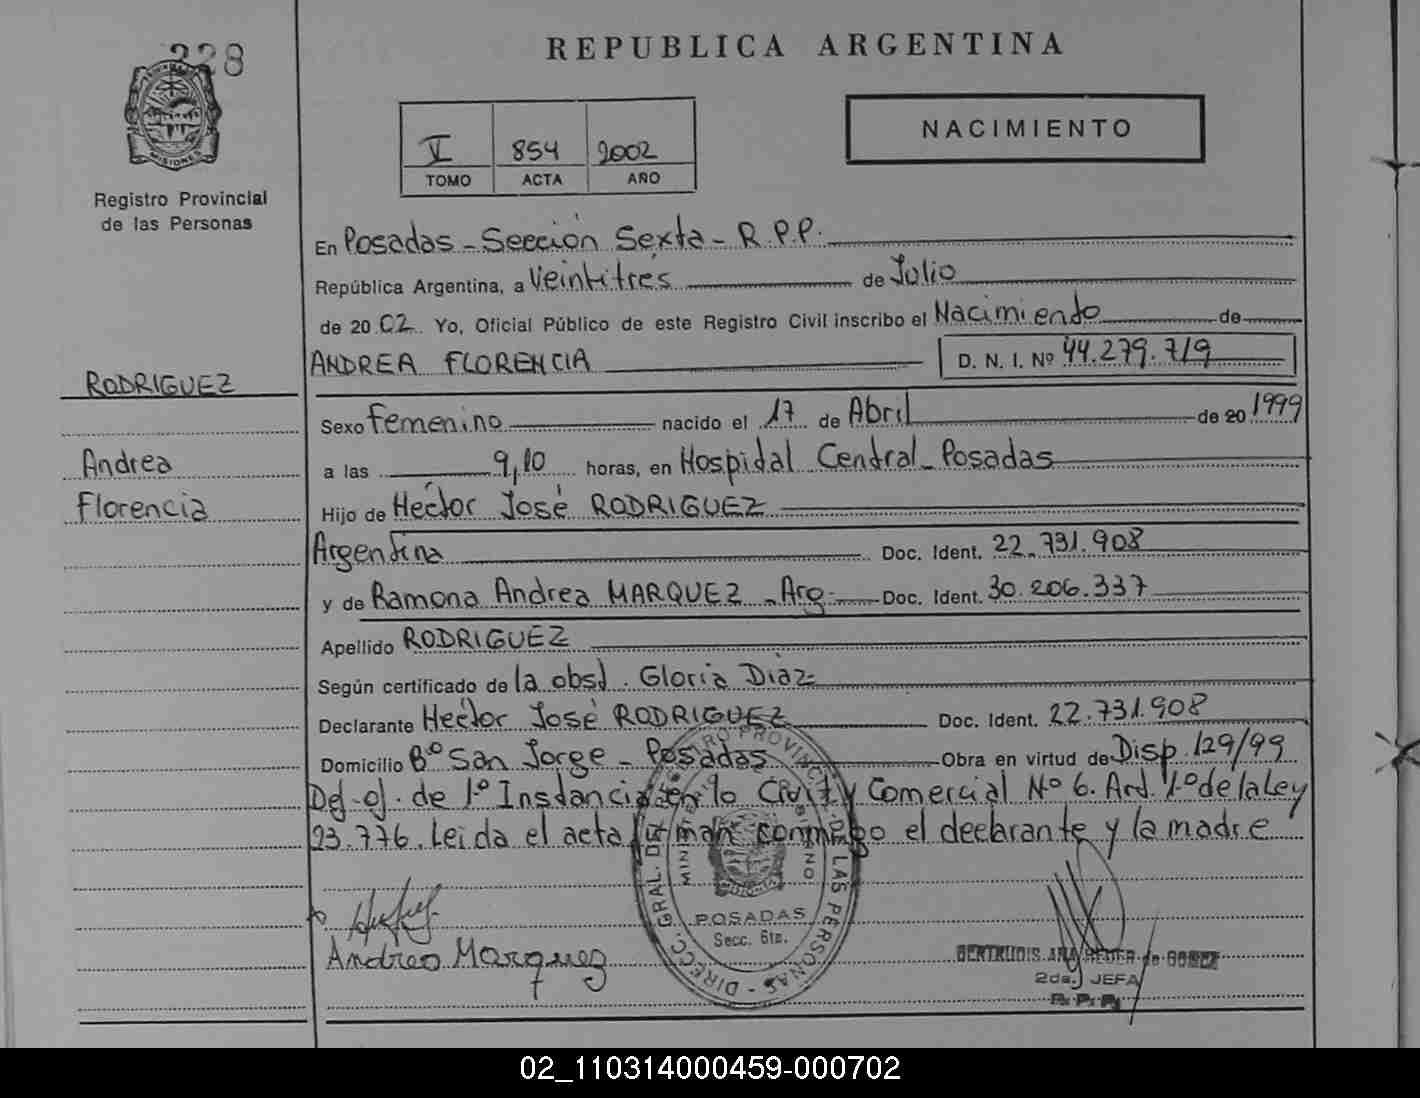 228
REPUBLICA ARGENTINA
MISIONES
Registro Provincial
de las Personas
V 854 2002
TOMO ACTA AÑO
NACIMIENTO
En Posadas - Sección Sexta - R.P.P.
República Argentina, a Veintitrés de Julio
de 2002 Yo, Oficial Público de este Registro Civil inscribo el Nacimiento de
ANDREA FLORENCIA D. N. I. Nº 44.279.719
RODRIGUEZ
Andrea
Florencia
Sexo Femenino nacido el 17 de Abril de 20 1999
a las 9,10 horas, en Hospital Central - Posadas
Hijo de Hector José RODRIGUEZ
Argentina Doc. Ident. 22.731.908
y de Ramona Andrea MARQUEZ - Arg. Doc. Ident. 30.206.337
Apellido RODRIGUEZ
Según certificado de la obst. Gloria Diaz
Declarante Hector José RODRIGUEZ Doc. Ident. 22.731.908
Domicilio Bº San Jorge - Posadas Obra en virtud de Disp. 129/99
Def. of. de 1º Instancia en lo Civil y Comercial Nº 6. Art. 1º de la Ley
23.776. Leida el acta firman conmigo el declarante y la madre
DIRECC. GRAL. DEL REGISTRO PROVINCIAL DE LAS PERSONAS
MINISTERIO DE GOBIERNO
POSADAS
Secc. 6ta.
Andrea Marquez
GERTRUDIS ANA de GOMEZ
2da. JEFA
R. P. P.
02_110314000459-000702